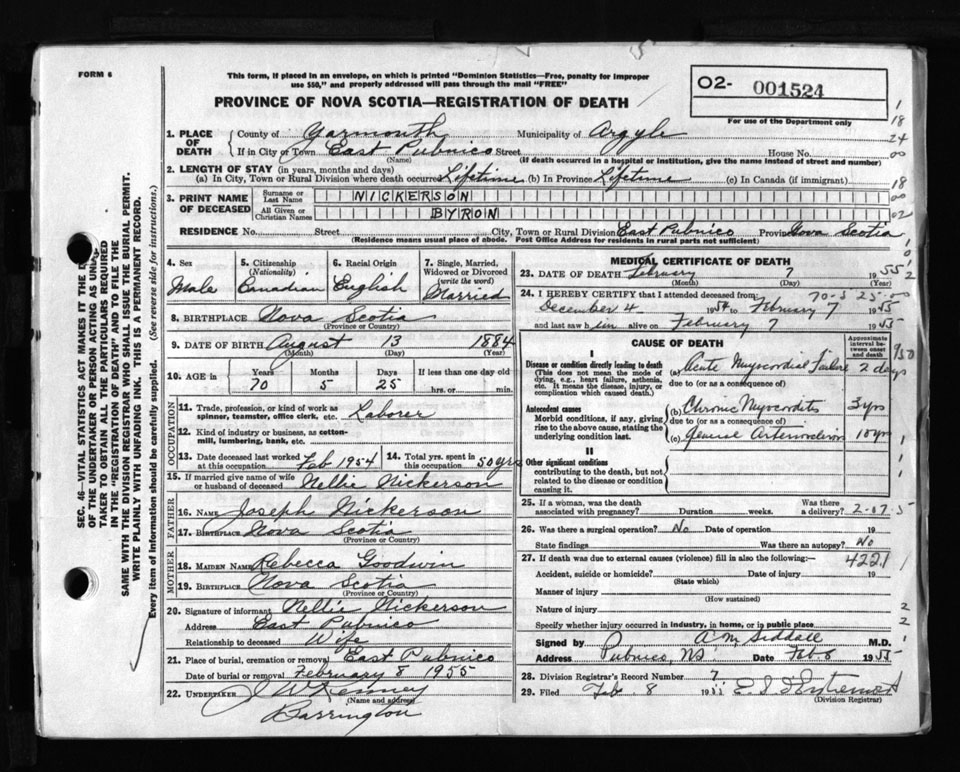 FORM 6
This form, if placed in an envelope, on which is printed "Dominion Statistics—Free, penalty for improper
use $50," and properly addressed will pass through the mail "FREE"
O2- 001524
For use of the Department only
PROVINCE OF NOVA SCOTIA—REGISTRATION OF DEATH
1. PLACE OF DEATH
County of Yarmouth Municipality of Argyle
If in City or Town East Pubnico Street House No.
(Name) (If death occurred in a hospital or institution, give the name instead of street and number)
2. LENGTH OF STAY (in years, months and days)
(a) In City, Town or Rural Division where death occurred Lifetime (b) In Province Lifetime (c) In Canada (if immigrant)
3. PRINT NAME OF DECEASED
Surname or Last Name NICKERSON
All Given or Christian Names BYRON
RESIDENCE No. Street City, Town or Rural Division East Pubnico Province Nova Scotia
(Residence means usual place of abode. Post Office Address for residents in rural parts not sufficient)
4. Sex Male
5. Citizenship (Nationality) Canadian
6. Racial Origin English
7. Single, Married, Widowed or Divorced (write the word) Married
8. BIRTHPLACE Nova Scotia
(Province or Country)
9. DATE OF BIRTH August 13 1884
(Month) (Day) (Year)
10. AGE in Years Months Days If less than one day old
70 5 25 hrs. or min.
OCCUPATION
11. Trade, profession, or kind of work as spinner, teamster, office clerk, etc. Laborer
12. Kind of industry or business, as cotton-mill, lumbering, bank, etc.
13. Date deceased last worked at this occupation Feb 1954
14. Total yrs. spent in this occupation 50 yrs
15. If married give name of wife or husband of deceased Nellie Nickerson
FATHER
16. NAME Joseph Nickerson
17. BIRTHPLACE Nova Scotia
(Province or Country)
MOTHER
18. MAIDEN NAME Rebecca Goodwin
19. BIRTHPLACE Nova Scotia
(Province or Country)
20. Signature of informant Nellie Nickerson
Address East Pubnico
Relationship to deceased Wife
21. Place of burial, cremation or removal East Pubnico
Date of burial or removal February 8 1955
22. UNDERTAKER Kenney
(Name and address)
Barrington
MEDICAL CERTIFICATE OF DEATH
23. DATE OF DEATH February 7 1955
(Month) (Day)
24. I HEREBY CERTIFY that I attended deceased from:
December 4 1954 to February 7 1955
and last saw him alive on February 7 1955
CAUSE OF DEATH
Approximate interval between onset and death
I
Disease or condition directly leading to death
(This does not mean the mode of dying, e.g., heart failure, asthenia, etc. It means the disease, injury, or complication which caused death.)
(a) Acute Myocordial Failure 2 days
due to (or as a consequence of)
Antecedent causes
Morbid conditions, if any, giving rise to the above cause, stating the underlying condition last.
(b) Chronic Myocorditis 3 yrs
due to (or as a consequence of)
(c) 10 yrs
II
Other significant conditions
contributing to the death, but not related to the disease or condition causing it.
25. If a woman, was the death associated with pregnancy? Duration weeks. Was there a delivery?
26. Was there a surgical operation? No Date of operation 19
State findings Was there an autopsy? No
27. If death was due to external causes (violence) fill in also the following:— 4221
Accident, suicide or homicide? Date of injury 19
(State which)
Manner of injury
(How sustained)
Nature of injury
Specify whether injury occurred in industry, in home, or in public place
Signed by A M Siddall M.D.
Address Pubnico, NS Date Feb 8 1955
28. Division Registrar's Record Number 7
29. Filed Feb. 8
(Division Registrar)
SEC. 46—VITAL STATISTICS ACT MAKES IT THE
OF THE UNDERTAKER OR PERSON ACTING AS
TAKER TO OBTAIN ALL THE PARTICULARS REQUIRED
IN THE "REGISTRATION OF DEATH" AND TO FILE THE
SAME WITH THE DIVISION REGISTRAR WHO SHALL ISSUE THE BURIAL PERMIT.
WRITE PLAINLY WITH UNFADING INK. THIS IS A PERMANENT RECORD.
Every item of information should be carefully supplied. (See reverse side for instructions.)